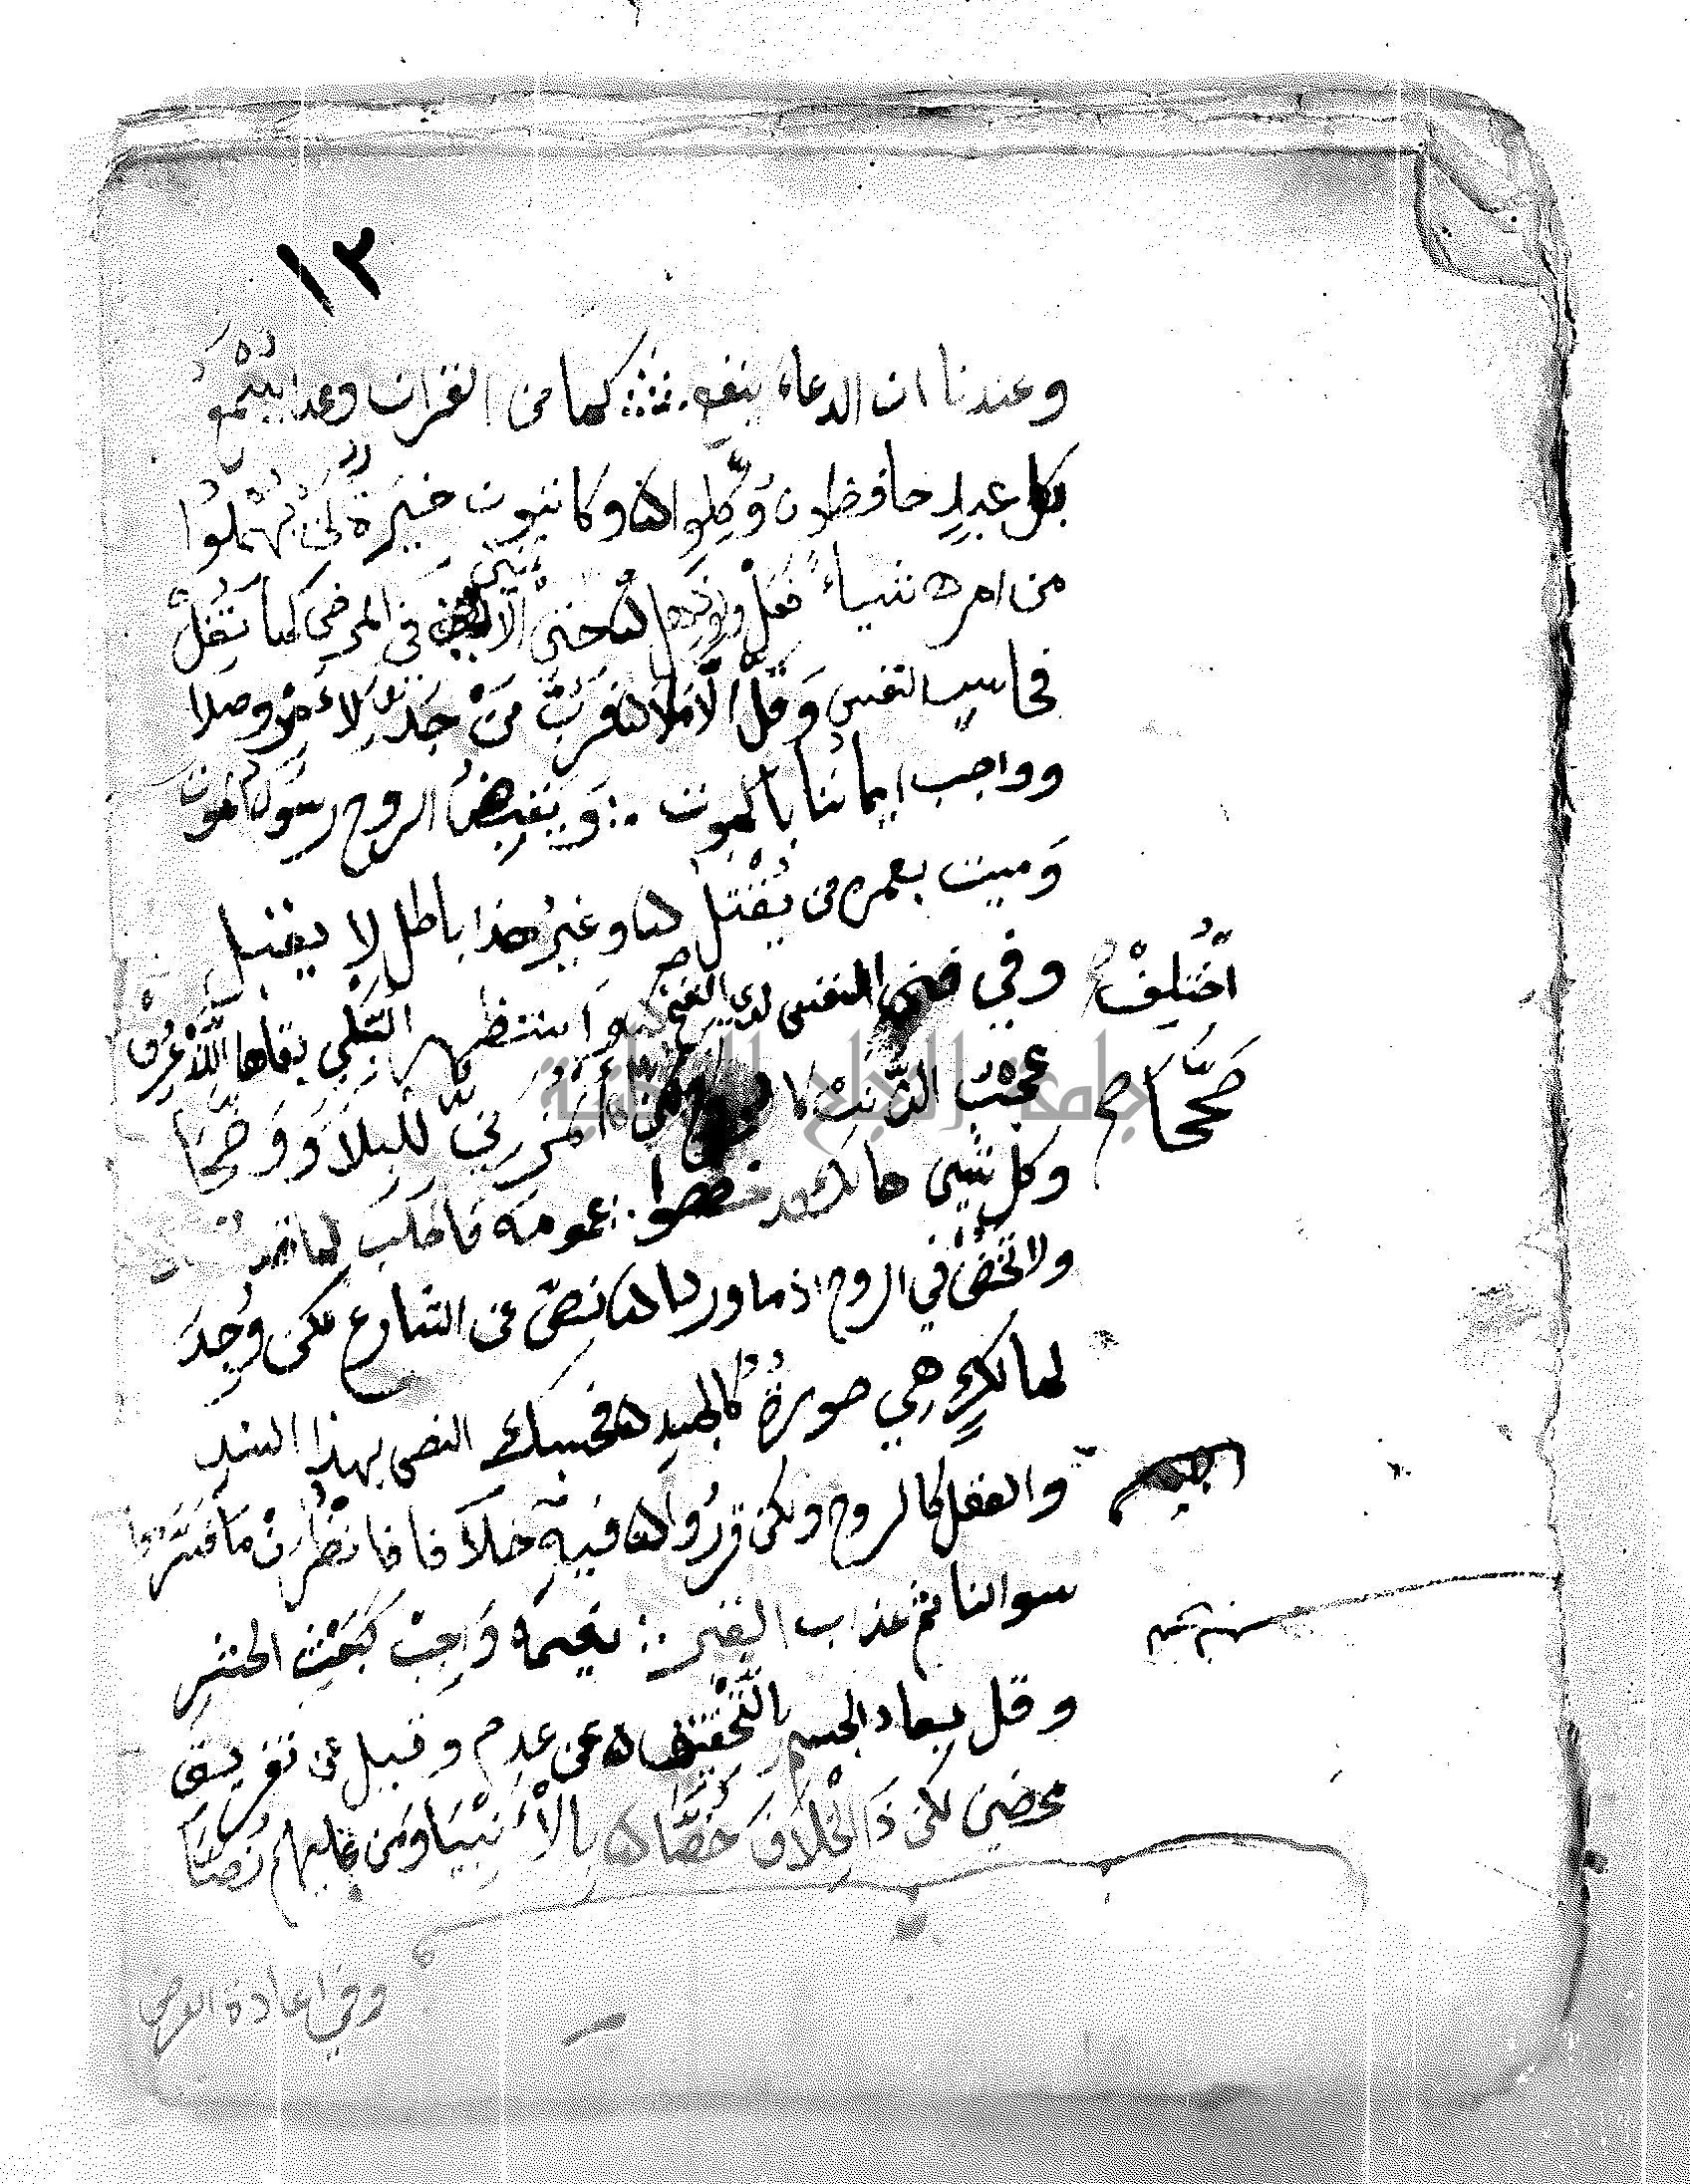 ١٢
وعندنا ان الدعاء ينفع كما من القران وعدا يُسْمَعُ
بكل عبدٍ حافظون وُكِّلُوا وكاتبون خيرَةٌ لَنْ يُهْمِلُوا
من امره شياءً فعلْ ولو ذهل حتى الأنين في المرض كما نُقِلْ
فحاسبِ النفس وَقَلِّ الأمَلَا فَرُبَّ مَنْ جَدَّ لِأمْرٍ وصلا
وواجب ايماننا بالموت وَيقبضُ الروح رسولُ الموت
وَميت بعمره من يُقْتَلُ وغيرُ هذا باطل لا يقبل
وفي فنى النفس لدى النفخ اختُلِفْ واستظهر السُّبْكي بقاها اللَّذْ عُرِفْ
عجْبَ الذَّنَبْ كالروح لكن صَحَّحَا المُزَنيُّ لِلْبِلَا وَوَضَّحَا
وكل شيى هالك قد خصصوا عمومه فاطلب لما
ولا تَخُضْ في الروح اذ ما وردا نصٌّ عن الشارع لكن وُجِدَ
لمالكٍ هي صورةٌ كالجسدِ فحسبك النص بهذا السند
والعقل كالروح ولكن قررُوا فيهِ خلَافا فانظُرنْ مَا فَسَّروا
سوالنا ثم عذاب القبر نعيمه وَاجبْ كبَعْثِ الحشر
وقل يعاد الجسم بالتَّحْقيق عن عدم وقيل عن تفريق
محضين لكن ذَا الْخِلَافَ خُصَّا بِالْأَنْبِيَا ومَن عليهم نُصَّا
اخْتُلِفْ
صَحَّحَا
الجسم
وفي اعادة العرض
جامعة النجاح الوطنية